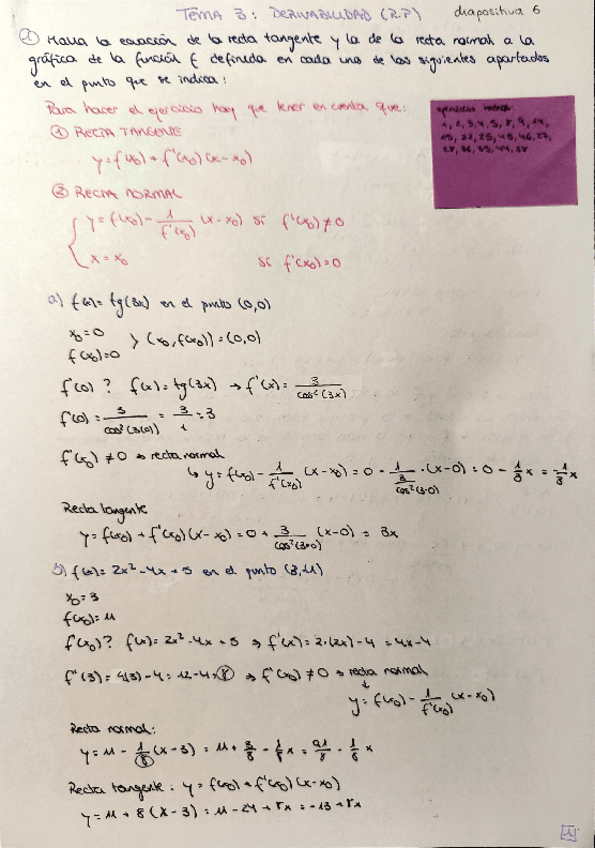 TEMA 3: DERIVABILIDAD (2.P) diapositiva 5
① Halla la ecuación de la recta tangente y la de la recta normal a la
gráfica de la función f definida en cada uno de los siguientes apartados
en el punto que se indica:
Para hacer el ejercicio hay que tener en cuenta que:
① RECTA TANGENTE
y = f(x₀) + f'(x₀)(x-x₀)
② RECTA NORMAL
y = f(x₀) - 1/f'(x₀) (x-x₀) si f'(x₀) ≠ 0
x = x₀ si f'(x₀) = 0
ejercicios
1, 2, 3, 4, 5, 8, 9, 14,
15, 22, 25, 45, 46, 27,
28, 36, 35, 44, 38
a) f(x) = tg(3x) en el punto (0,0)
x₀ = 0
f(x₀) = 0 > (x₀, f(x₀)) = (0,0)
f'(0) ? f(x) = tg(3x) → f'(x) = 3/cos²(3x)
f'(0) = 3/cos²(3(0)) = 3/1 = 3
f'(x₀) ≠ 0 → recta normal
↳ y = f(x₀) - 1/f'(x₀) (x-x₀) = 0 - 1/(3/cos²(3·0)) · (x-0) = 0 - 1/3 x = -1/3 x
Recta tangente
y = f(x₀) + f'(x₀)(x-x₀) = 0 + 3/cos²(3·0) (x-0) = 3x
b) f(x) = 2x² - 4x + 5 en el punto (3,11)
x₀ = 3
f(x₀) = 11
f'(x₀)? f(x) = 2x² - 4x + 5 ⇒ f'(x) = 2·(2x) - 4 = 4x - 4
f'(3) = 4(3) - 4 = 12 - 4 = 8 ⇒ f'(x₀) ≠ 0 ⇒ recta normal
↓
y = f(x₀) - 1/f'(x₀) (x-x₀)
Recta normal:
y = 11 - 1/8 (x-3) = 11 + 3/8 - 1/8 x = 91/8 - 1/8 x
Recta tangente: y = f(x₀) + f'(x₀)(x-x₀)
y = 11 + 8(x-3) = 11 - 24 + 8x = -13 + 8x